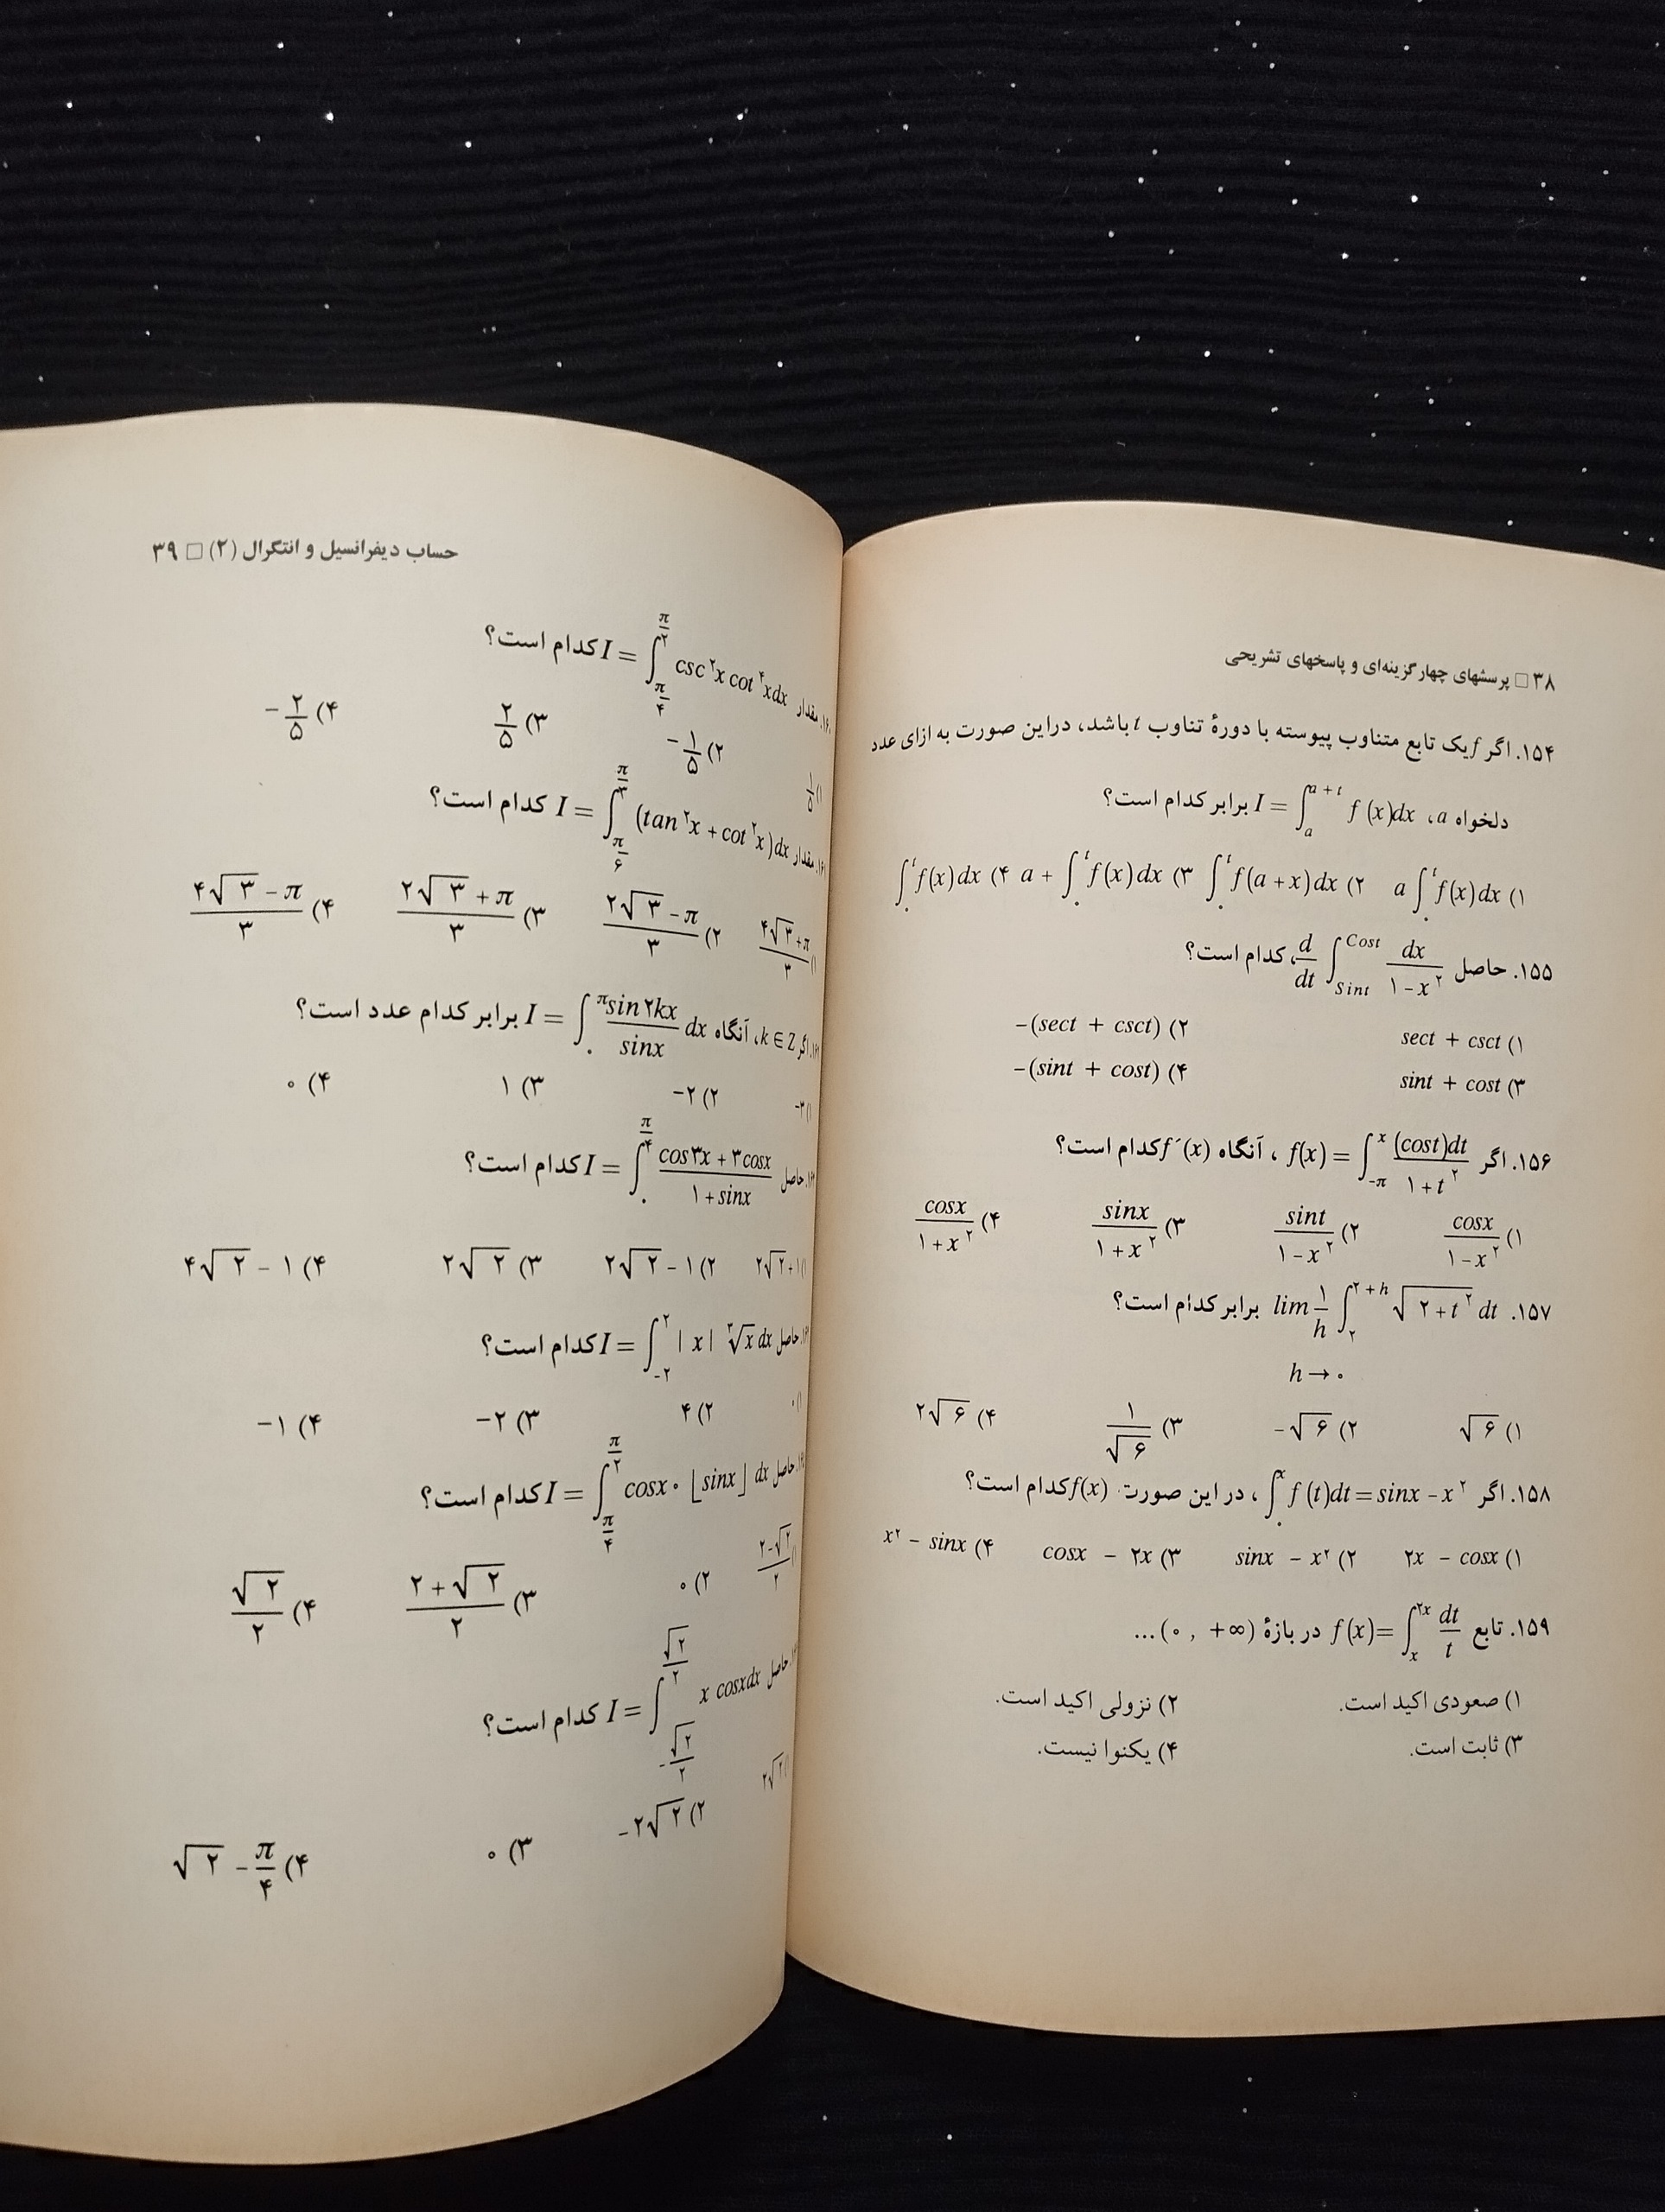 ۳۸ □ پرسشهای چهارگزینه‌ای و پاسخهای تشریحی
۱۵۴. اگر f یک تابع متناوب پیوسته با دورهٔ تناوب t باشد، دراین صورت به ازای عدد
دلخواه a، I = ∫_a^{a+t} f(x)dx برابر کدام است؟
۱) a∫_۰^t f(x)dx ۲) ∫_۰^t f(a+x)dx ۳) a + ∫_۰^t f(x)dx ۴) ∫_۰^t f(x)dx
۱۵۵. حاصل d/dt ∫_{Sint}^{Cost} dx/(۱-x^۲)، کدام است؟
۱) sect + csct ۲) -(sect + csct)
۳) sint + cost ۴) -(sint + cost)
۱۵۶. اگر f(x) = ∫_{-π}^x (cost)dt/(۱+t^۲) ، آنگاه f´(x) کدام است؟
۱) cosx/(۱-x^۲) ۲) sint/(۱-x^۲) ۳) sinx/(۱+x^۲) ۴) cosx/(۱+x^۲)
۱۵۷. lim ۱/h ∫_۲^{۲+h} √(۲+t^۲) dt برابر کدام است؟
h→۰
۱) √۶ ۲) -√۶ ۳) ۱/√۶ ۴) ۲√۶
۱۵۸. اگر ∫_۰^x f(t)dt = sinx - x^۲ ، در این صورت f(x) کدام است؟
۱) ۲x - cosx ۲) sinx - x^۲ ۳) cosx - ۲x ۴) x^۲ - sinx
۱۵۹. تابع f(x) = ∫_x^{۲x} dt/t در بازهٔ (۰ , +∞) ...
۱) صعودی اکید است. ۲) نزولی اکید است.
۳) ثابت است. ۴) یکنوا نیست.
حساب دیفرانسیل و انتگرال (۲) □ ۳۹
مقدار I = ∫_{π/۴}^{π/۲} csc^۲x cot^۴xdx کدام است؟
۱) ۱/۵ ۲) -۱/۵ ۳) ۲/۵ ۴) -۲/۵
مقدار I = ∫_{π/۶}^{π/۳} (tan^۲x + cot^۲x)dx کدام است؟
۱) (۴√۳+π)/۳ ۲) (۲√۳-π)/۳ ۳) (۲√۳+π)/۳ ۴) (۴√۳-π)/۳
اگر k∈Z، آنگاه I = ∫_۰^π sin۲kx/sinx dx برابر کدام عدد است؟
۲) -۲ ۳) ۱ ۴) ۰
حاصل I = ∫_۰^{π/۴} (cos۳x + ۳cosx)/(۱+sinx) کدام است؟
۱) ۲√۲+۱ ۲) ۲√۲-۱ ۳) ۲√۲ ۴) ۴√۲-۱
حاصل I = ∫_{-۲}^۲ |x| ∛x dx کدام است؟
۱) ۰ ۲) ۴ ۳) -۲ ۴) -۱
حاصل I = ∫_{π/۴}^{π/۲} cosx ۰ ⌊sinx⌋ dx کدام است؟
۱) (۲-√۲)/۲ ۲) ۰ ۳) (۲+√۲)/۲ ۴) √۲/۲
حاصل I = ∫_{-√۲/۲}^{√۲/۲} x cosxdx کدام است؟
۱) ۲√۲ ۲) -۲√۲ ۳) ۰ ۴) √۲ - π/۴